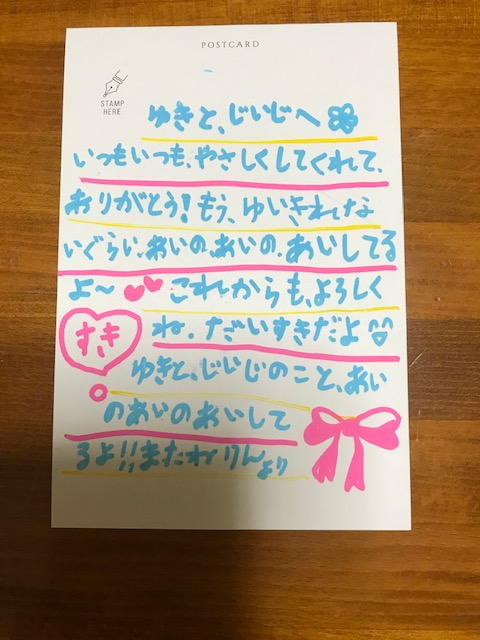 POSTCARD
STAMP
HERE
ゆきと、じいじへ
いつもいつも、やさしくしてくれて、
ありがとう!もう、ゆいきれな
いぐらい、あいの、あいの、あいしてる
よ〜 これからも、よろしく
ね。だいすきだよ
すき
ゆきと、じいじのこと、あい
のあいのあいして
るよ!!またねりんより